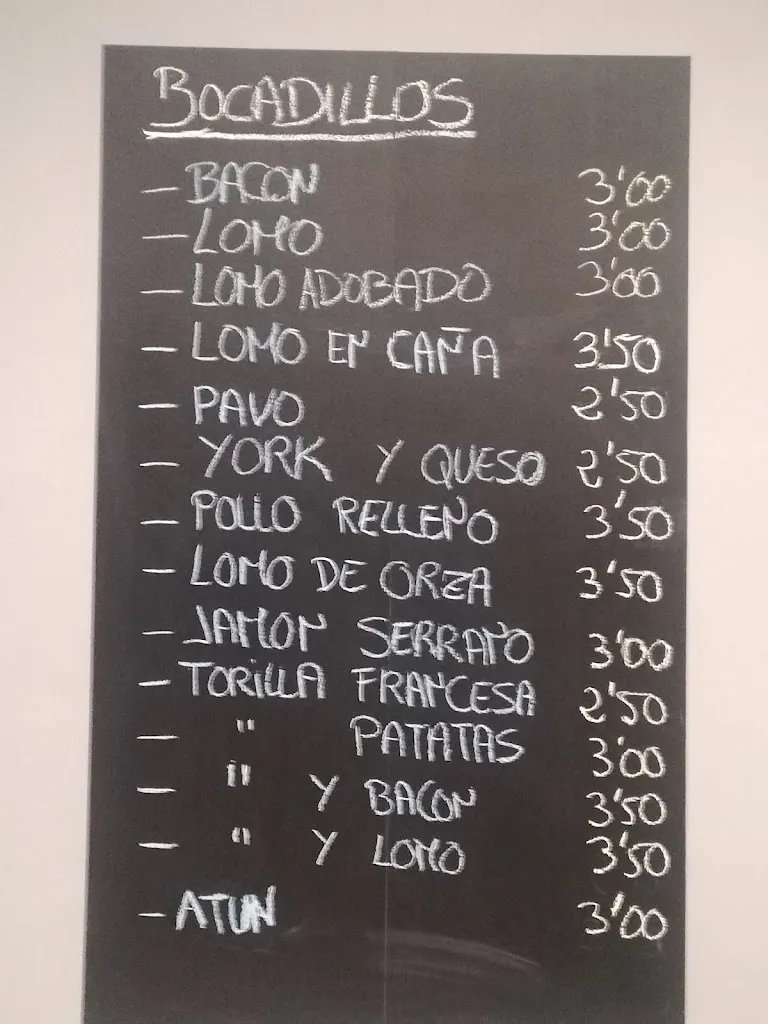 BOCADILLOS
- BACON 3'00
- LOMO 3'00
- LOMO ADOBADO 3'00
- LOMO EN CAÑA 3'50
- PAVO 2'50
- YORK Y QUESO 2'50
- POLLO RELLENO 3'50
- LOMO DE ORZA 3'50
- JAMON SERRANO 3'00
- TORILLA FRANCESA 2'50
- " PATATAS 3'00
- " Y BACON 3'50
- " Y LOMO 3'50
- ATUN 3'00